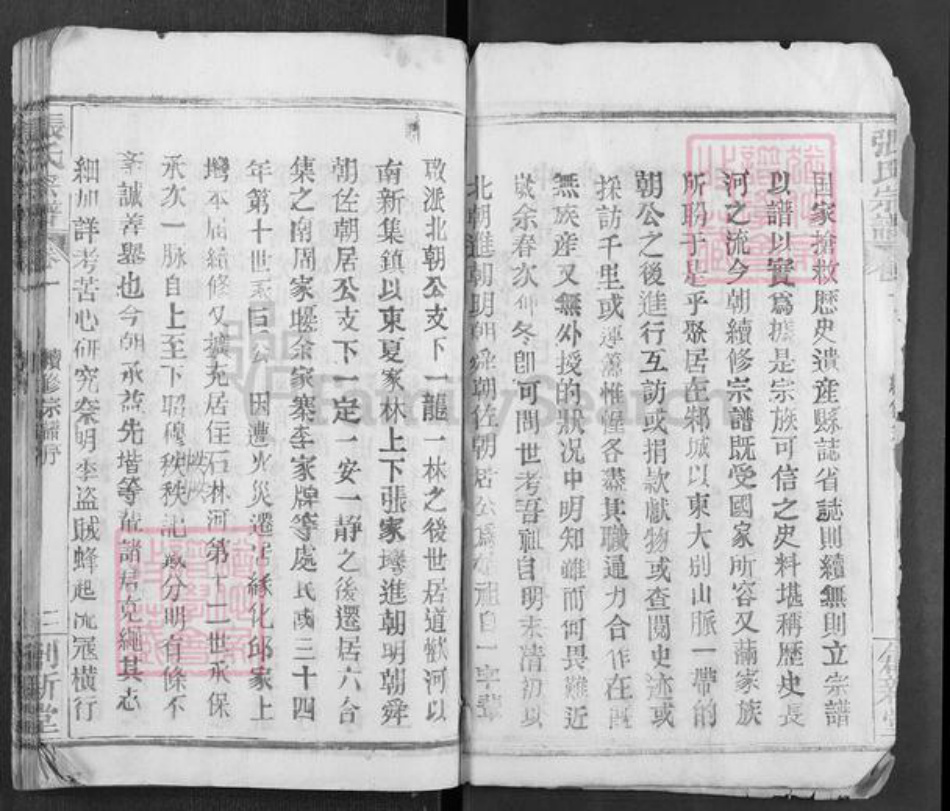 張氏宗譜
國家搶救歷史遺産縣誌省誌則續無則立宗譜
以譜以實爲據是宗族可信之史料堪稱歷史長
河之流今朝續修宗譜既受國家所容又蘭家族
所盼于是乎聚居在邾城以東大别山脈一帶的
朝公之後進行互訪或捐款獻物或查閱史迹或
採訪千里或運籌惟幄各盡其職通力合作在既
無族産又無外授的狀况中明知雖而何畏難近
歲余春次仲冬卽可問世考吾祖自明末清初以
北朝進朝明朝舜朝佐朝居公爲始祖自一字輩
啟派北朝公支下一龍一林之後世居道歡河以
南新集鎮以東夏家林上下張家灣進朝明朝舜
朝佐朝居公支下一定一安一静之後遷居六合
集之南周家堰余家寨李家牌等處民國三十四
年第十世家巨公因遭火災遷居緣化邱家上
灣本屆續修又擴充居住石林河第十二世承保
承次一脉自上至下昭穆秩秩記載分明有條不
紊誠善舉也今朝承益先堦等儕諸君克繩其志
細加詳考苦心研究奈明季盗賊蜂起流冦橫行
張氏宗譜
卷一
續修宗譜序
三